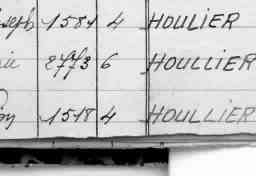 1581 4 HOULIER
2773 6 HOULLIER
1518 4 HOULLIER